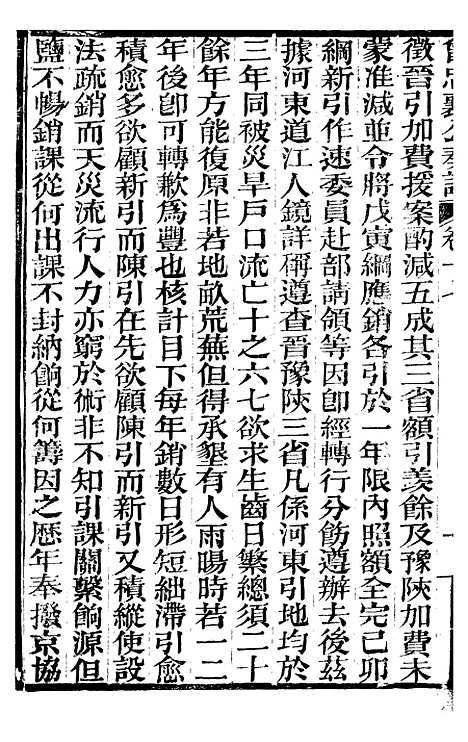 徵晉引加費援案酌減五成其三省額引羨餘及豫陝加費未
蒙准減並令將戊寅綱應銷各引於一年限內照額全完己卯
綱新引作速委員赴部請領等因卽經轉行分飭遵辦去後茲
據河東道江人鏡詳稱遵查晉豫陝三省凡係河東引地均於
三年同被災旱戶口流亡十之六七欲求生齒日繁總須二十
餘年方能復原非若地畝荒蕪但得承墾有人雨暘時若一二
年後卽可轉歉爲豐也核計目下每年銷數日形短絀滯引愈
積愈多欲顧新引而陳引在先欲顧陳引而新引又積縱使設
法疏銷而天災流行人力亦窮於術非不知引課關繫餉源但
鹽不暢銷課從何出課不封納餉從何籌因之歷年奉撥京協